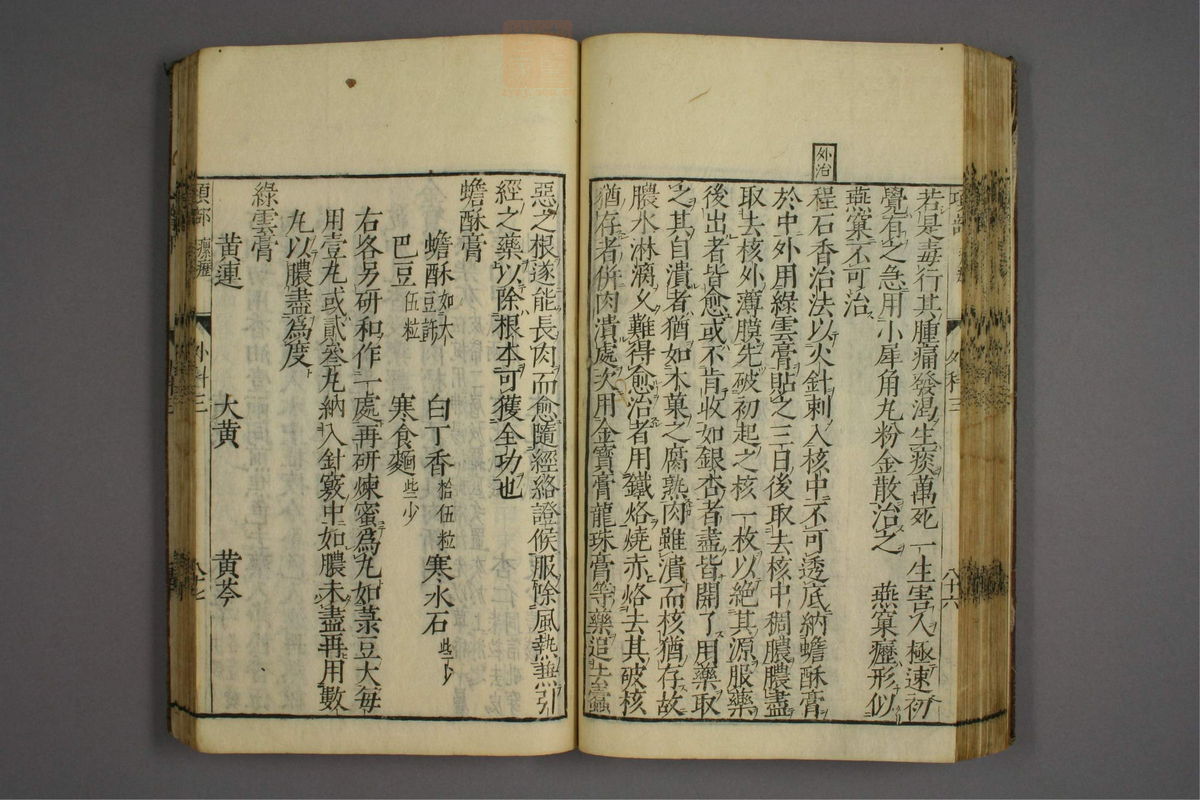 項部
外科三
八十六
若是毒行其腫痛發渴生痰萬死一生害人極速初
覺有之急用小犀角丸粉金散治之　燕窠癧形似
燕窠不可治
外治
程石香治法以火針刺入核中不可透底納蟾酥膏
於中外用綠雲膏貼之三日後取去核中稠膿膿盡
取去核外薄膜先破初起之核一枚以絕其源服藥
後出者皆愈或不肯收如銀杏者盡皆開了用藥取
之其自潰者猶如木菓之腐熟肉雖潰而核猶存故
膿水淋漓久難得愈治者用鐵烙燒赤烙去其破核
猶存者併肉潰處次用金寶膏龍珠膏等藥追生蠹
惡之根遂能長肉而愈隨經絡證候服除風熱兼引
經之藥以除根本可獲全功也
蟾酥膏
蟾酥如大豆許　白丁香拾伍粒　寒水石些少
巴豆伍粒　寒食麵些少
右各另研和作一處再研煉蜜為丸如菉豆大每
用壹丸或貳叄丸納入針竅中如膿未盡再用數
丸以膿盡為度
綠雲膏
黄連　大黄　黄芩
項部　瘰癧
外科三
八十七